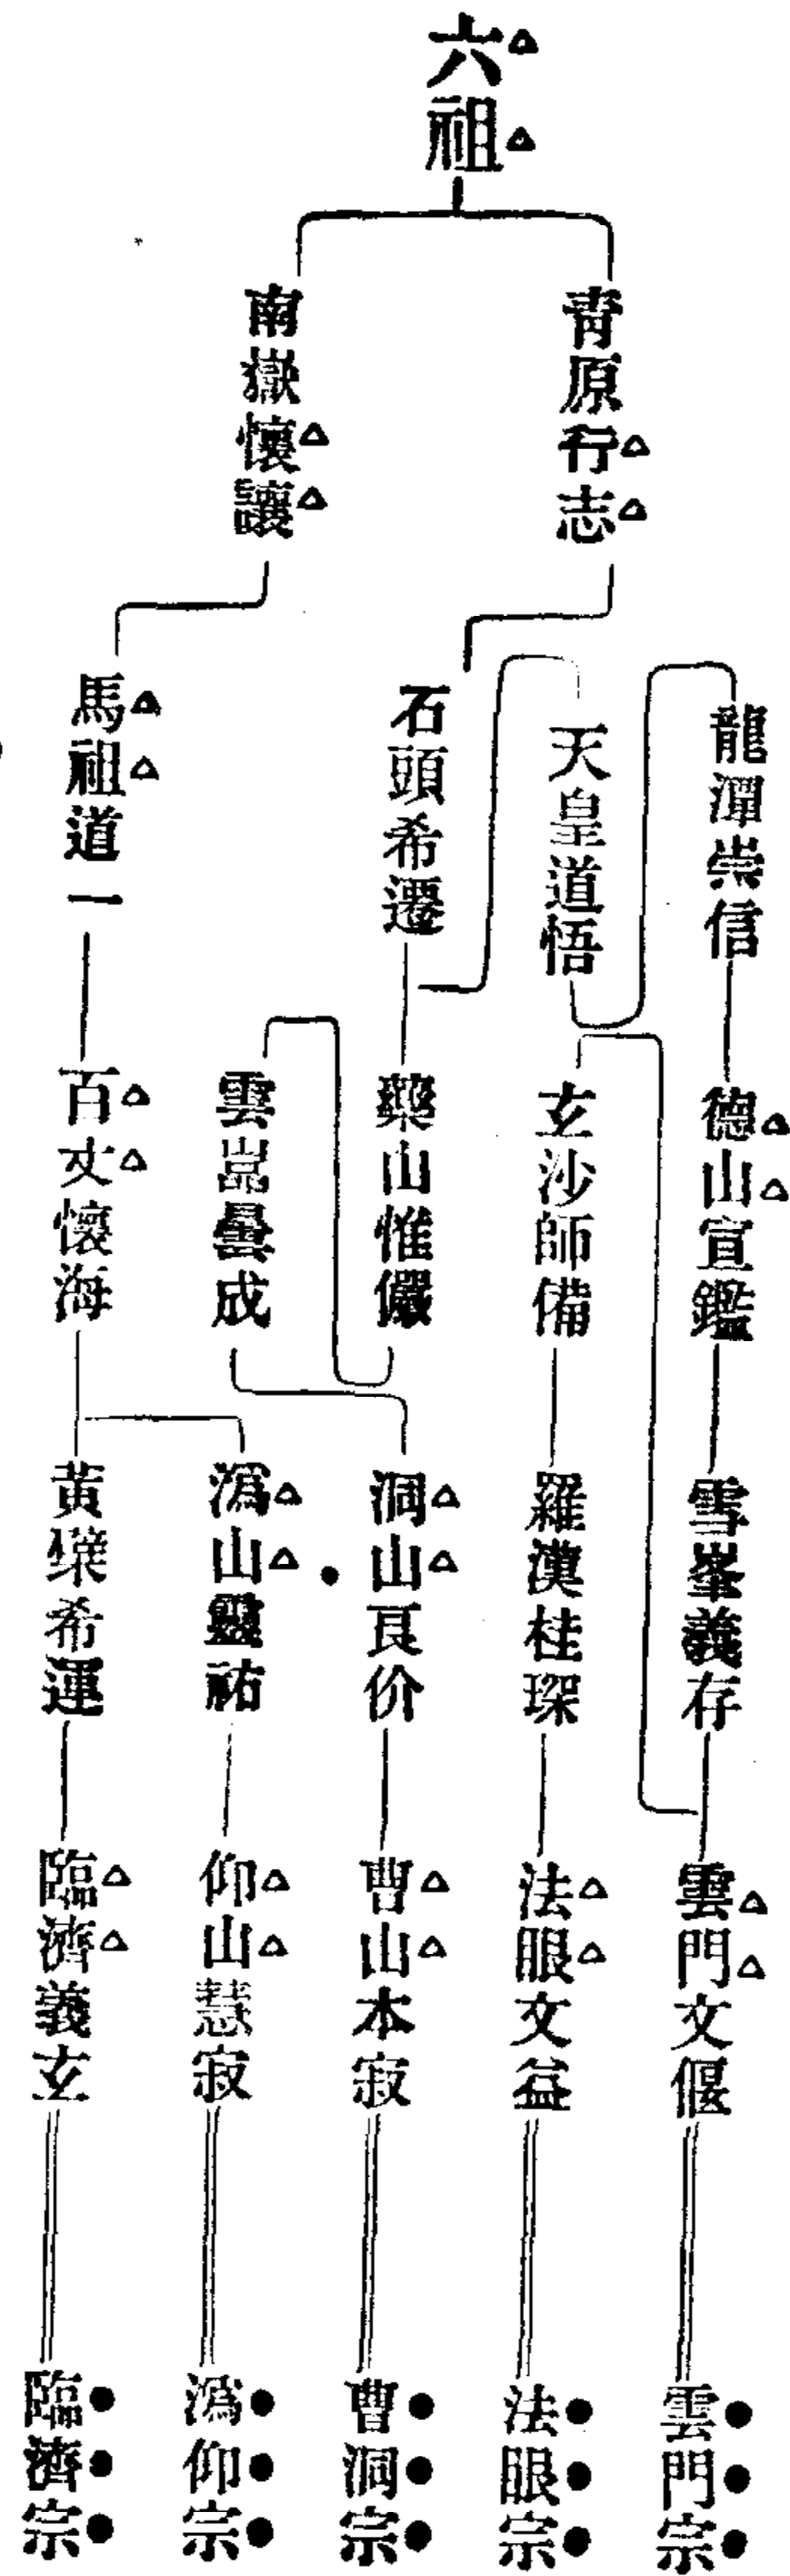 六祖
青原行志
南嶽懷讓
龍潭崇信
天皇道悟
石頭希遷
馬祖道一
德山宣鑑
玄沙師備
藥山惟儼
雲嵓曇成
百丈懷海
雪峯義存
羅漢桂琛
洞山良价
潙山靈祐
黃檗希運
雲門文偃
法眼文益
曹山本寂
仰山慧寂
臨濟義玄
雲門宗
法眼宗
曹洞宗
潙仰宗
臨濟宗